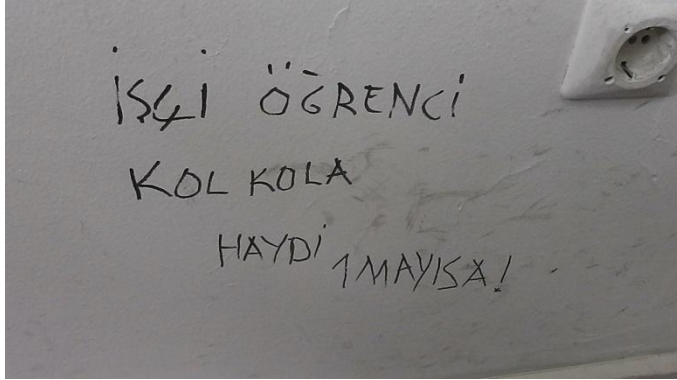 İŞÇİ ÖĞRENCİ
KOL KOLA
HAYDİ 1 MAYISA!